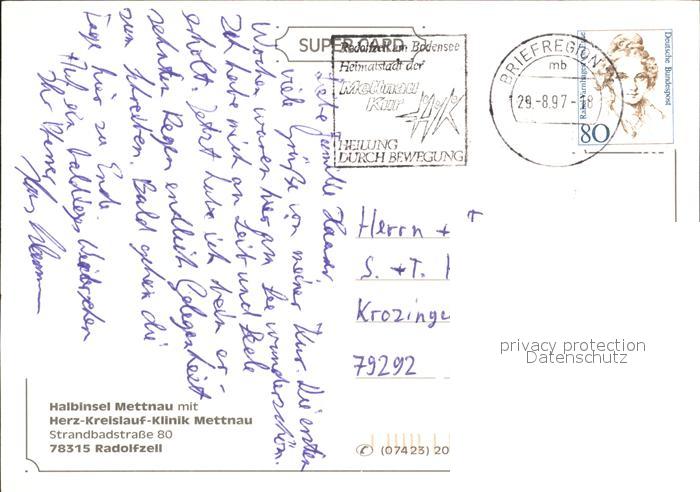 SUPER CARD
Radolfzell am Bodensee
Heimatstadt der
Mettnau
Kur
HEILUNG
DURCH BEWEGUNG
BRIEFREGION
mb
29.-8.97-18
Deutsche Bundespost
80
Liebe Familie
viele Grüße von meiner Kur. Die ersten
Wochen waren hier am See wunderschön.
Ich habe mich an Leib und Seele
erholt. Jetzt habe ich beim er-
sehnten Regen endlich Gelegenheit
zum Schreiben. Bald gehen die
Tage hier zu Ende.
Auf ein baldiges Wiedersehen
Ihr
Herrn +
S. + T.
Krozinge
79292
privacy protection
Datenschutz
Halbinsel Mettnau mit
Herz-Kreislauf-Klinik Mettnau
Strandbadstraße 80
78315 Radolfzell
(07423) 20